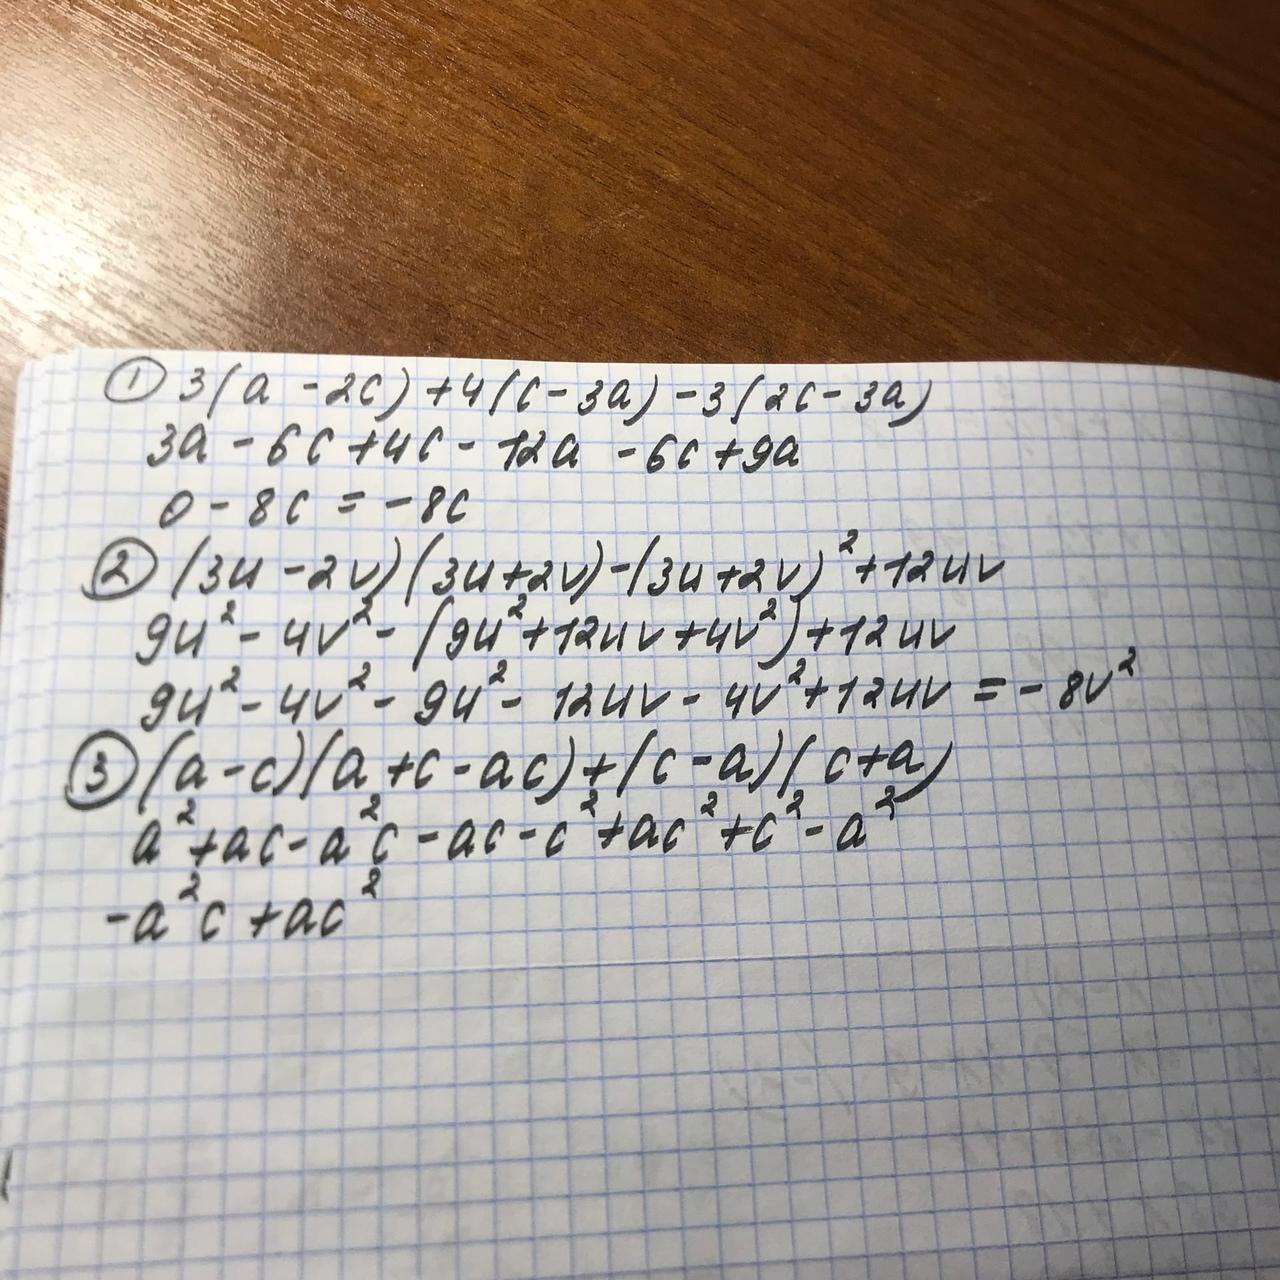 ① 3(a - 2c) + 4(c - 3a) - 3(2c - 3a)
3a - 6c + 4c - 12a - 6c + 9a
0 - 8c = -8c
② (3u - 2v)(3u + 2v) - (3u + 2v)² + 12uv
9u² - 4v² - (9u² + 12uv + 4v²) + 12uv
9u² - 4v² - 9u² - 12uv - 4v² + 12uv = -8v²
③ (a - c)(a + c - ac) + (c - a)(c + a)
a² + ac - a²c - ac - c² + ac² + c² - a²
-a²c + ac²